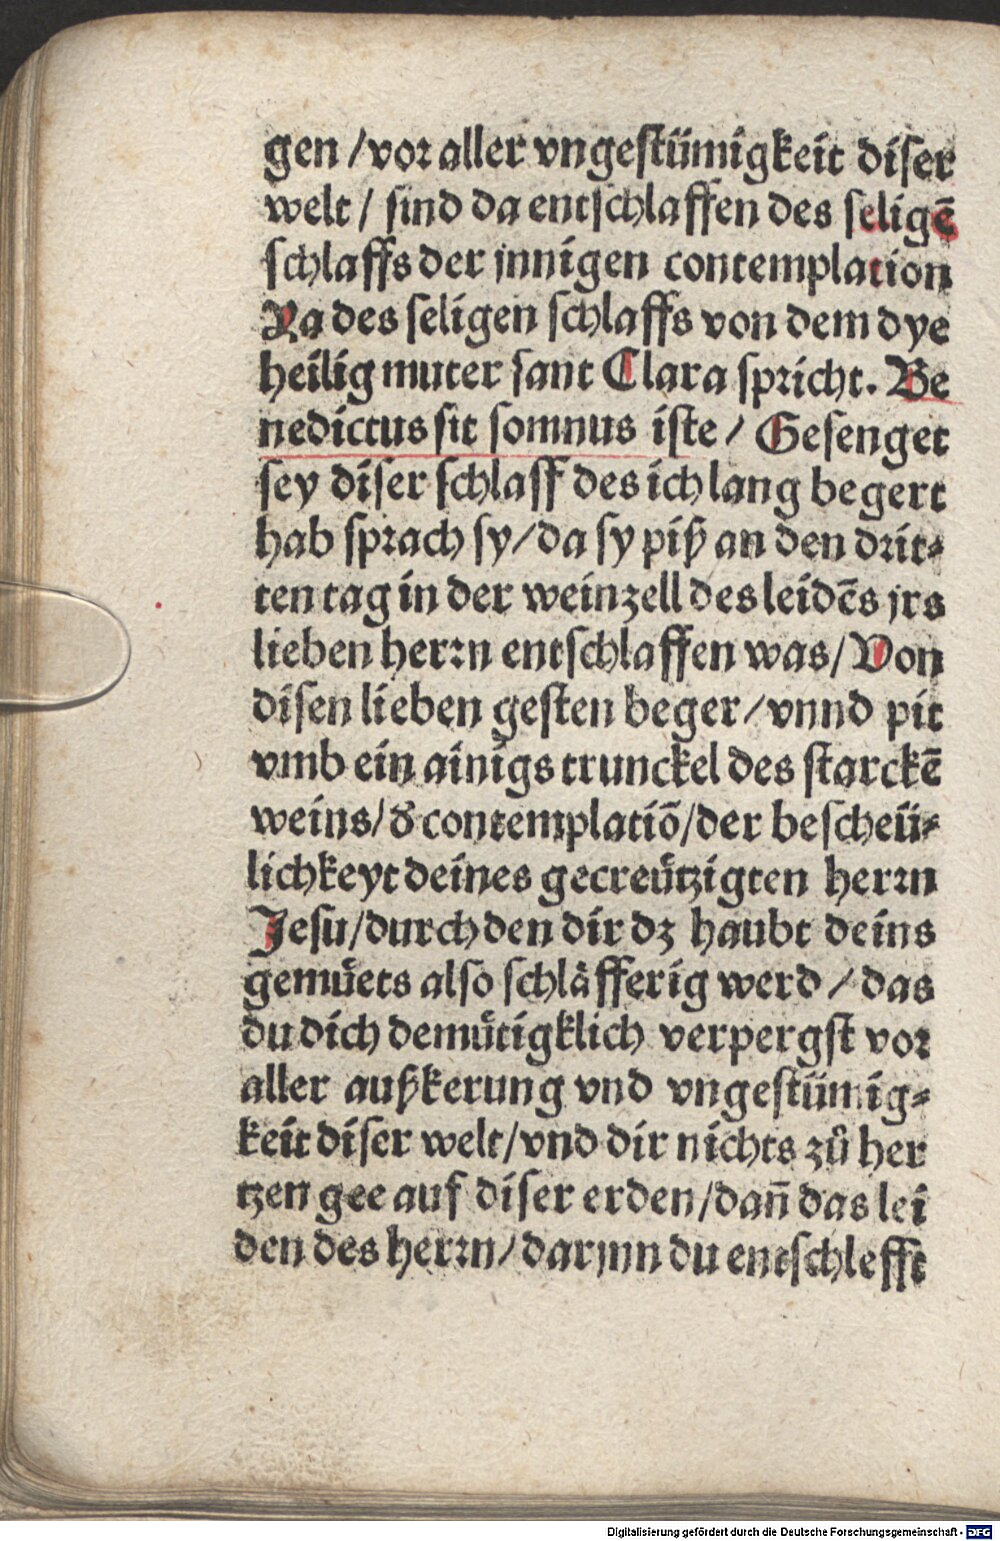 gen / vor aller vngestümigkeit diser
welt / sind da entschlaffen des seligē
schlaffs der jnnigen contemplation
Ya des seligen schlaffs von dem dye
heilig muter sant Clara spricht. Be
nedictus sit somnus iste / Gesenget
sey diser schlaff des ich lang begert
hab sprach sy / da sy piß an den drit⸗
ten tag in der weinzell des leidēs jrs
lieben herrn entschlaffen was / Von
disen lieben gesten beger / vnnd pit
vmb ein ainigs trunckel des starckē
weins / d̕ contemplatiō / der bescheü⸗
lichkeyt deines gecreuͤtzigten herrn
Jesu / durch den dir dz haubt deins
gemuͤets also schlaͤfferig werd / das
du dich demuͤtigklich verpergst vor
aller außkerung vnd vngestümig⸗
keit diser welt / vnd dir nichts zů her
tzen gee auf diser erden / dañ das lei
den des herrn / darjnn du entschlefft
Digitalisierung gefördert durch die Deutsche Forschungsgemeinschaft - DFG